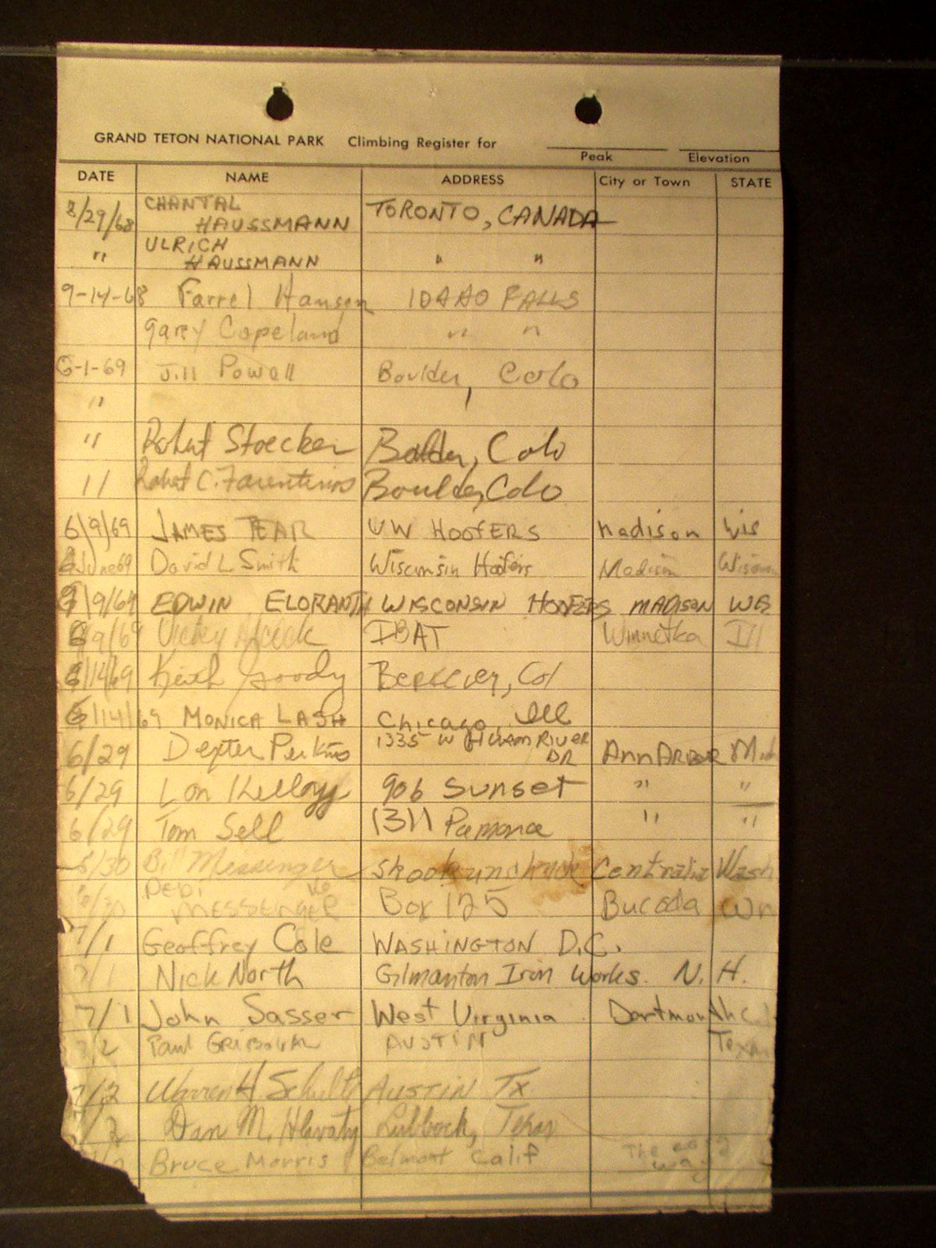 GRAND TETON NATIONAL PARK Climbing Register for
Peak Elevation
DATE NAME ADDRESS City or Town STATE
8/29/68 CHANTAL HAUSSMANN TORONTO, CANADA
" ULRICH HAUSSMANN " "
9-14-68 Farrel Hansen IDAHO FALLS
Gary Copeland " "
6-1-69 Jill Powell Boulder, Colo
"
" Robert Stoecker Boulder, Colo
11 Robert C. Farentinos Boulder, Colo
6/9/69 JAMES TEAR UW HOOFERS Madison Wis
June 69 David L Smith Wisconsin Hoofers Madison Wisconsin
6/9/69 EDWIN ELORANTA WISCONSIN HOOFERS MADISON WIS
6/9/69 Vicky IBAT Winnetka Ill
6/14/69 Keith Goody BERKELEY, Cal
6/14/69 MONICA LASH Chicago, Ill
6/29 Dexter Perkins 1335 W HURON RIVER DR ANN ARBOR Mich
6/29 Lon Kellogg 906 Sunset " "
6/29 Tom Sell 1311 Pamona " "
6/30 Bill Messenger Skookumchuck Centralia Wash
6/30 DEDI MESSENGER Box 125 Bucoda Wn
7/1 Geoffrey Cole WASHINGTON D.C.
7/1 Nick North Gilmanton Iron Works. N. H.
7/1 John Sasser West Virginia Dartmouth
7/2 Paul AUSTIN Texas
7/2 Warren H Schultz AUSTIN Tx
7/2 Dan M. Hlavaty Lubbock, Texas
Bruce Morris Belmont Calif The easy way